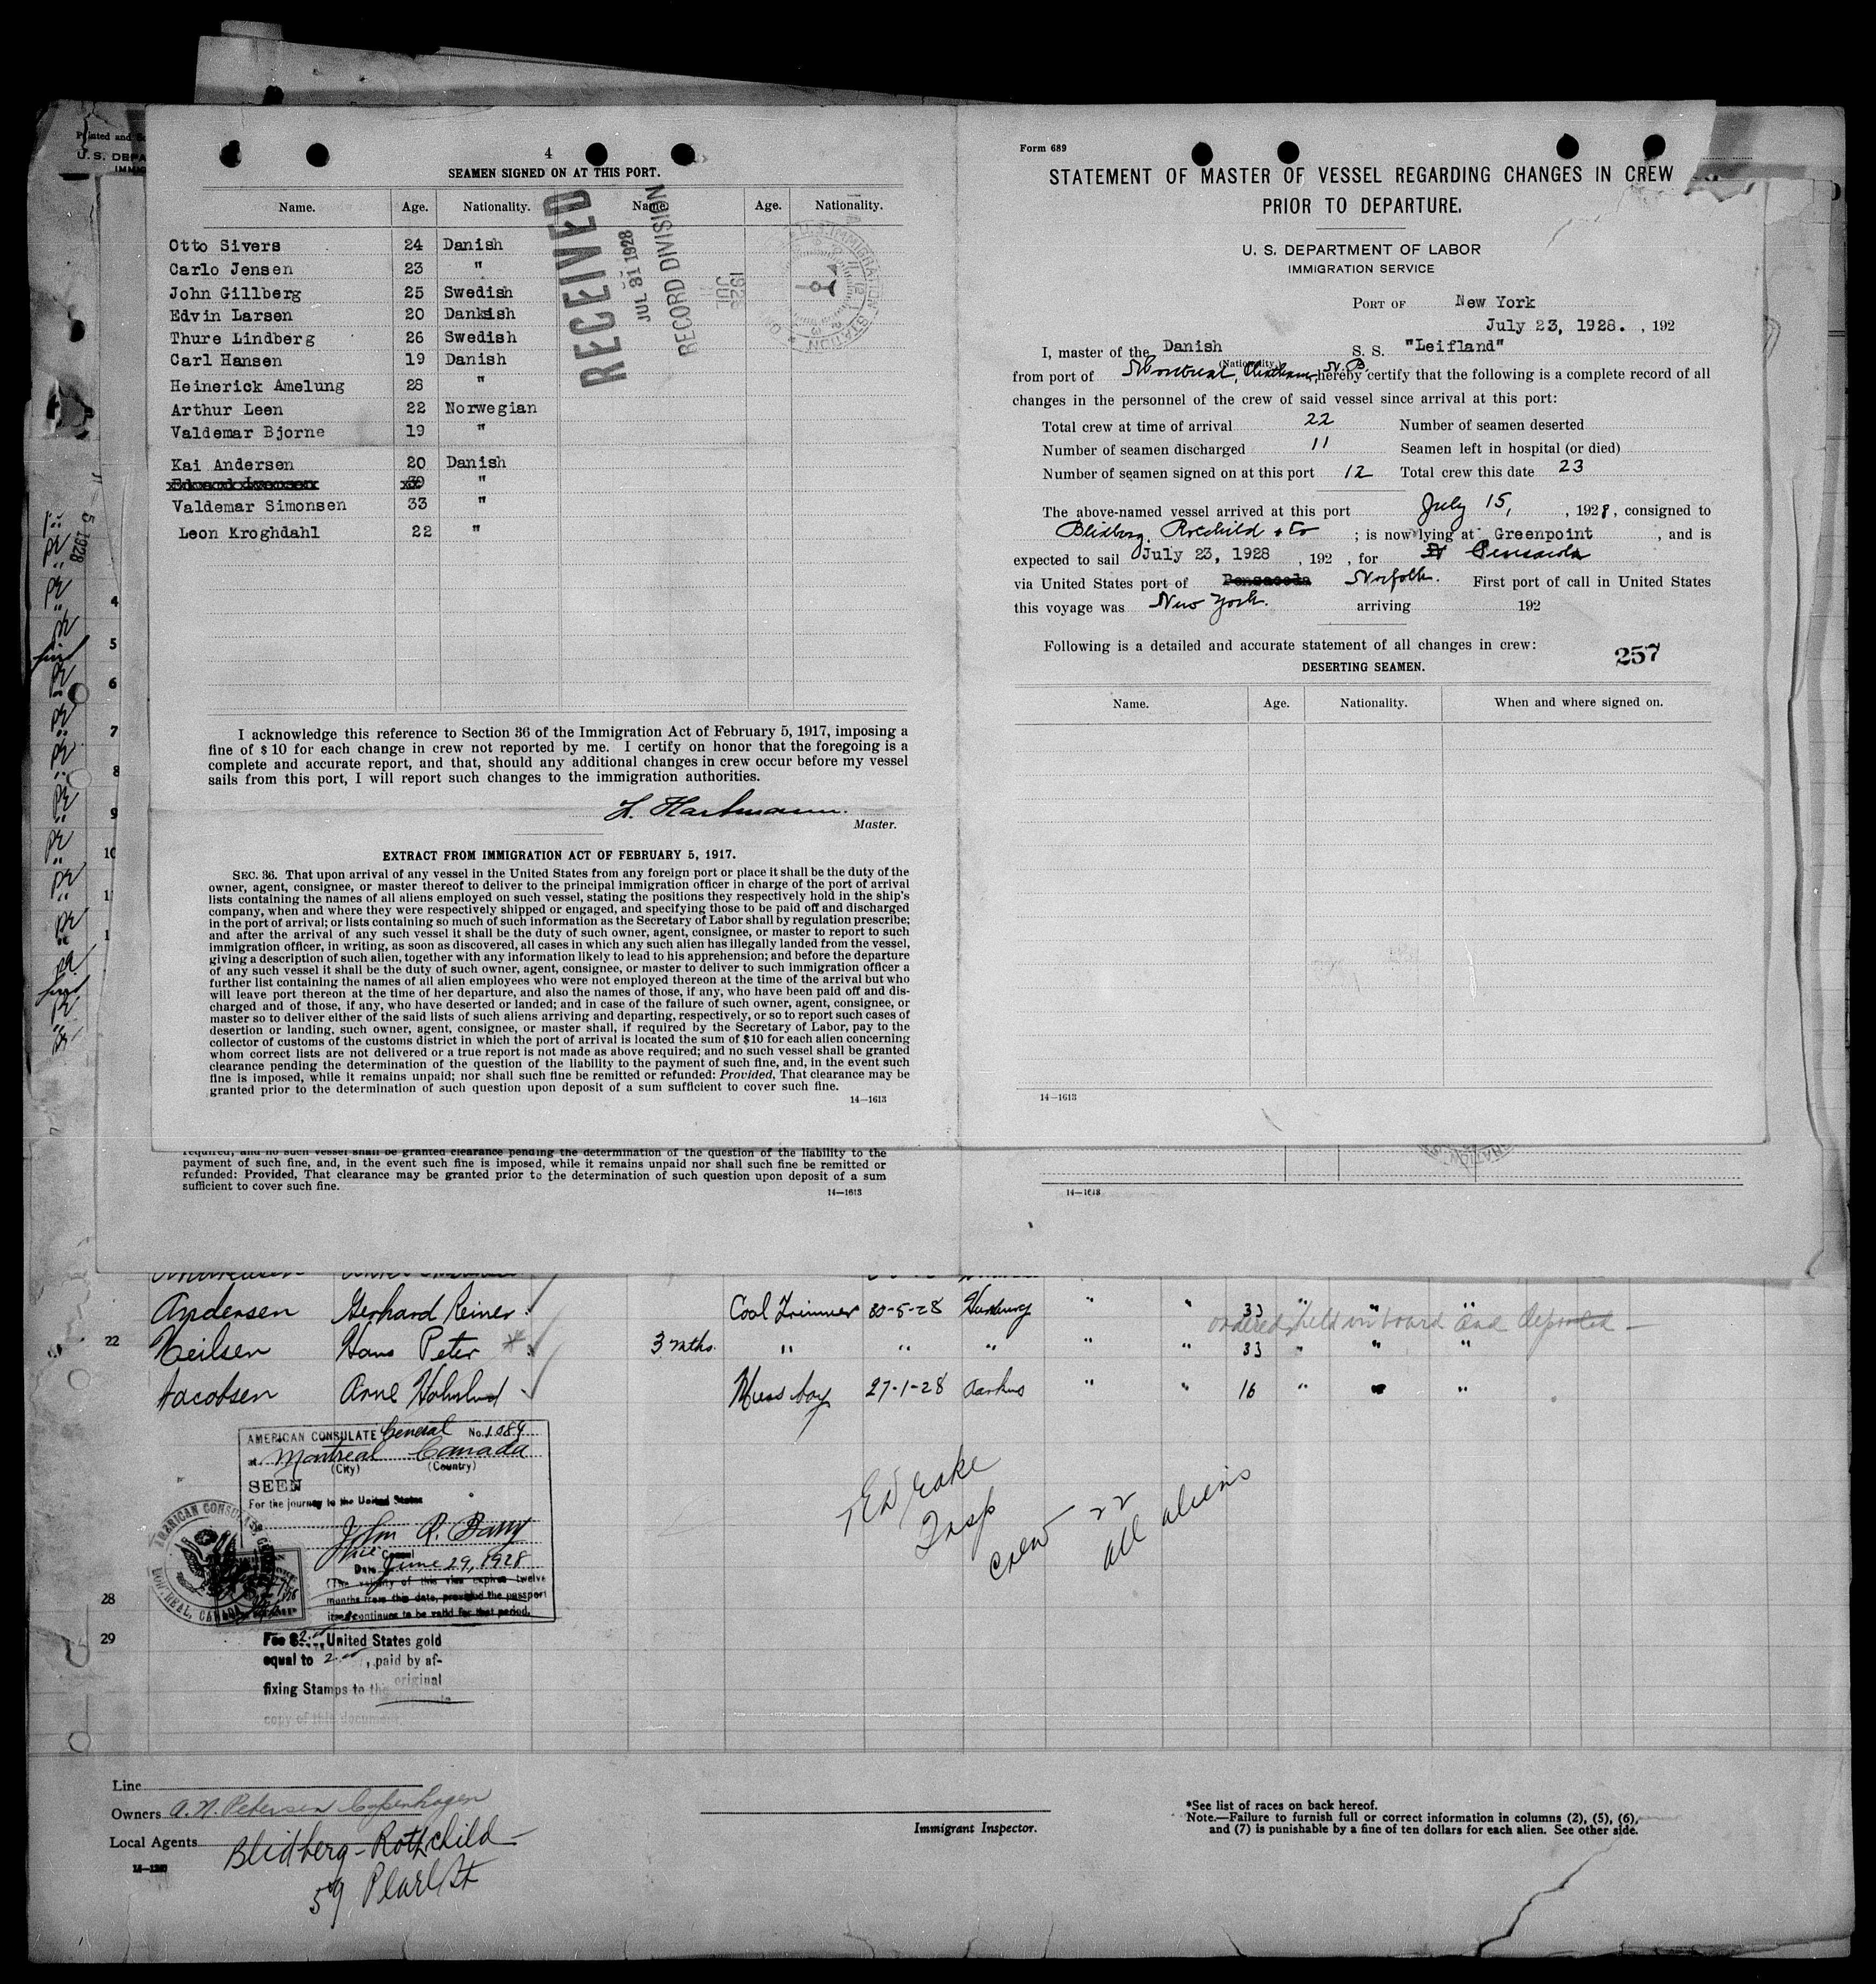 Printed and
U. S. DEPA
IMMIG
4
SEAMEN SIGNED ON AT THIS PORT.
Name. Age. Nationality. Name. Age. Nationality.
Otto Sivers 24 Danish
Carlo Jensen 23 "
John Gillberg 25 Swedish
Edvin Larsen 20 Danish
Thure Lindberg 26 Swedish
Carl Hansen 19 Danish
Heinerick Amelung 28 "
Arthur Leen 22 Norwegian
Valdemar Bjorne 19 "
Kai Andersen 20 Danish
"
Valdemar Simonsen 33 "
Leon Kroghdahl 22 "
RECEIVED
JUL 31 1928
RECORD DIVISION
1928
JUL
U.S. IMMIGRATION STATION
I acknowledge this reference to Section 36 of the Immigration Act of February 5, 1917, imposing a
fine of $10 for each change in crew not reported by me. I certify on honor that the foregoing is a
complete and accurate report, and that, should any additional changes in crew occur before my vessel
sails from this port, I will report such changes to the immigration authorities.
Hartmann.
Master.
EXTRACT FROM IMMIGRATION ACT OF FEBRUARY 5, 1917.
SEC. 36. That upon arrival of any vessel in the United States from any foreign port or place it shall be the duty of the
owner, agent, consignee, or master thereof to deliver to the principal immigration officer in charge of the port of arrival
lists containing the names of all aliens employed on such vessel, stating the positions they respectively hold in the ship's
company, when and where they were respectively shipped or engaged, and specifying those to be paid off and discharged
in the port of arrival; or lists containing so much of such information as the Secretary of Labor shall by regulation prescribe;
and after the arrival of any such vessel it shall be the duty of such owner, agent, consignee, or master to report to such
immigration officer, in writing, as soon as discovered, all cases in which any such alien has illegally landed from the vessel,
giving a description of such alien, together with any information likely to lead to his apprehension; and before the departure
of any such vessel it shall be the duty of such owner, agent, consignee, or master to deliver to such immigration officer a
further list containing the names of all alien employees who were not employed thereon at the time of the arrival but who
will leave port thereon at the time of her departure, and also the names of those, if any, who have been paid off and dis-
charged and of those, if any, who have deserted or landed; and in case of the failure of such owner, agent, consignee, or
master so to deliver either of the said lists of such aliens arriving and departing, respectively, or so to report such cases of
desertion or landing, such owner, agent, consignee, or master shall, if required by the Secretary of Labor, pay to the
collector of customs of the customs district in which the port of arrival is located the sum of $10 for each alien concerning
whom correct lists are not delivered or a true report is not made as above required; and no such vessel shall be granted
clearance pending the determination of the question of the liability to the payment of such fine, and, in the event such
fine is imposed, while it remains unpaid; nor shall such fine be remitted or refunded: Provided, That clearance may be
granted prior to the determination of such question upon deposit of a sum sufficient to cover such fine.
14—1613
Form 689
STATEMENT OF MASTER OF VESSEL REGARDING CHANGES IN CREW
PRIOR TO DEPARTURE.
U. S. DEPARTMENT OF LABOR
IMMIGRATION SERVICE
PORT OF New York
July 23, 1928. , 192
I, master of the Danish S. S. "Leifland"
(Nationality.)
from port of Montreal, Chatham, N.B. hereby certify that the following is a complete record of all
changes in the personnel of the crew of said vessel since arrival at this port:
Total crew at time of arrival 22 Number of seamen deserted
Number of seamen discharged 11 Seamen left in hospital (or died)
Number of seamen signed on at this port 12 Total crew this date 23
The above-named vessel arrived at this port July 15, , 1928, consigned to
Blidberg, Rotchild & Co ; is now lying at Greenpoint , and is
expected to sail July 23, 1928 , 192 , for Pensacola
via United States port of Pensacola Norfolk. First port of call in United States
this voyage was New York. arriving 192
Following is a detailed and accurate statement of all changes in crew:
257
DESERTING SEAMEN.
Name. Age. Nationality. When and where signed on.
14—1613
5 1928
4
5
6
7
8
9
10
1
1
required; and no such vessel shall be granted clearance pending the determination of the question of the liability to the
payment of such fine, and, in the event such fine is imposed, while it remains unpaid nor shall such fine be remitted or
refunded: Provided, That clearance may be granted prior to the determination of such question upon deposit of a sum
sufficient to cover such fine.
14—1613
14—1613
Andersen Gerhard Reiner Coal Trimmer 30-5-28 Hamburg " " 33 " " "
ordered held on board and deported
22 Neilsen Hans Peter 3 mths. " " " " " 33 " " "
Jacobsen Arne Holmlund Mess boy 27-1-28 Aarhus " " 16 " " "
AMERICAN CONSULATE General No. 1089
at Montreal Canada
(City) (Country)
SEEN
For the journey to the United States
John R. Barry
Vice Consul
Date June 29, 1928
(The validity of this visa expires twelve
months from this date, provided the passport
continues to be valid for that period.
AMERICAN CONSULATE GENERAL
MONTREAL, CANADA
Fee $2.00 United States gold
equal to 2.00, paid by af-
fixing Stamps to the original
copy of this document.
Drake
Insp
Crew 22
all aliens
28
29
Line
Owners A. N. Petersen Copenhagen
Local Agents Blidberg-Rothchild
59 Pearl St
Immigrant Inspector.
*See list of races on back hereof.
Note.—Failure to furnish full or correct information in columns (2), (5), (6),
and (7) is punishable by a fine of ten dollars for each alien. See other side.